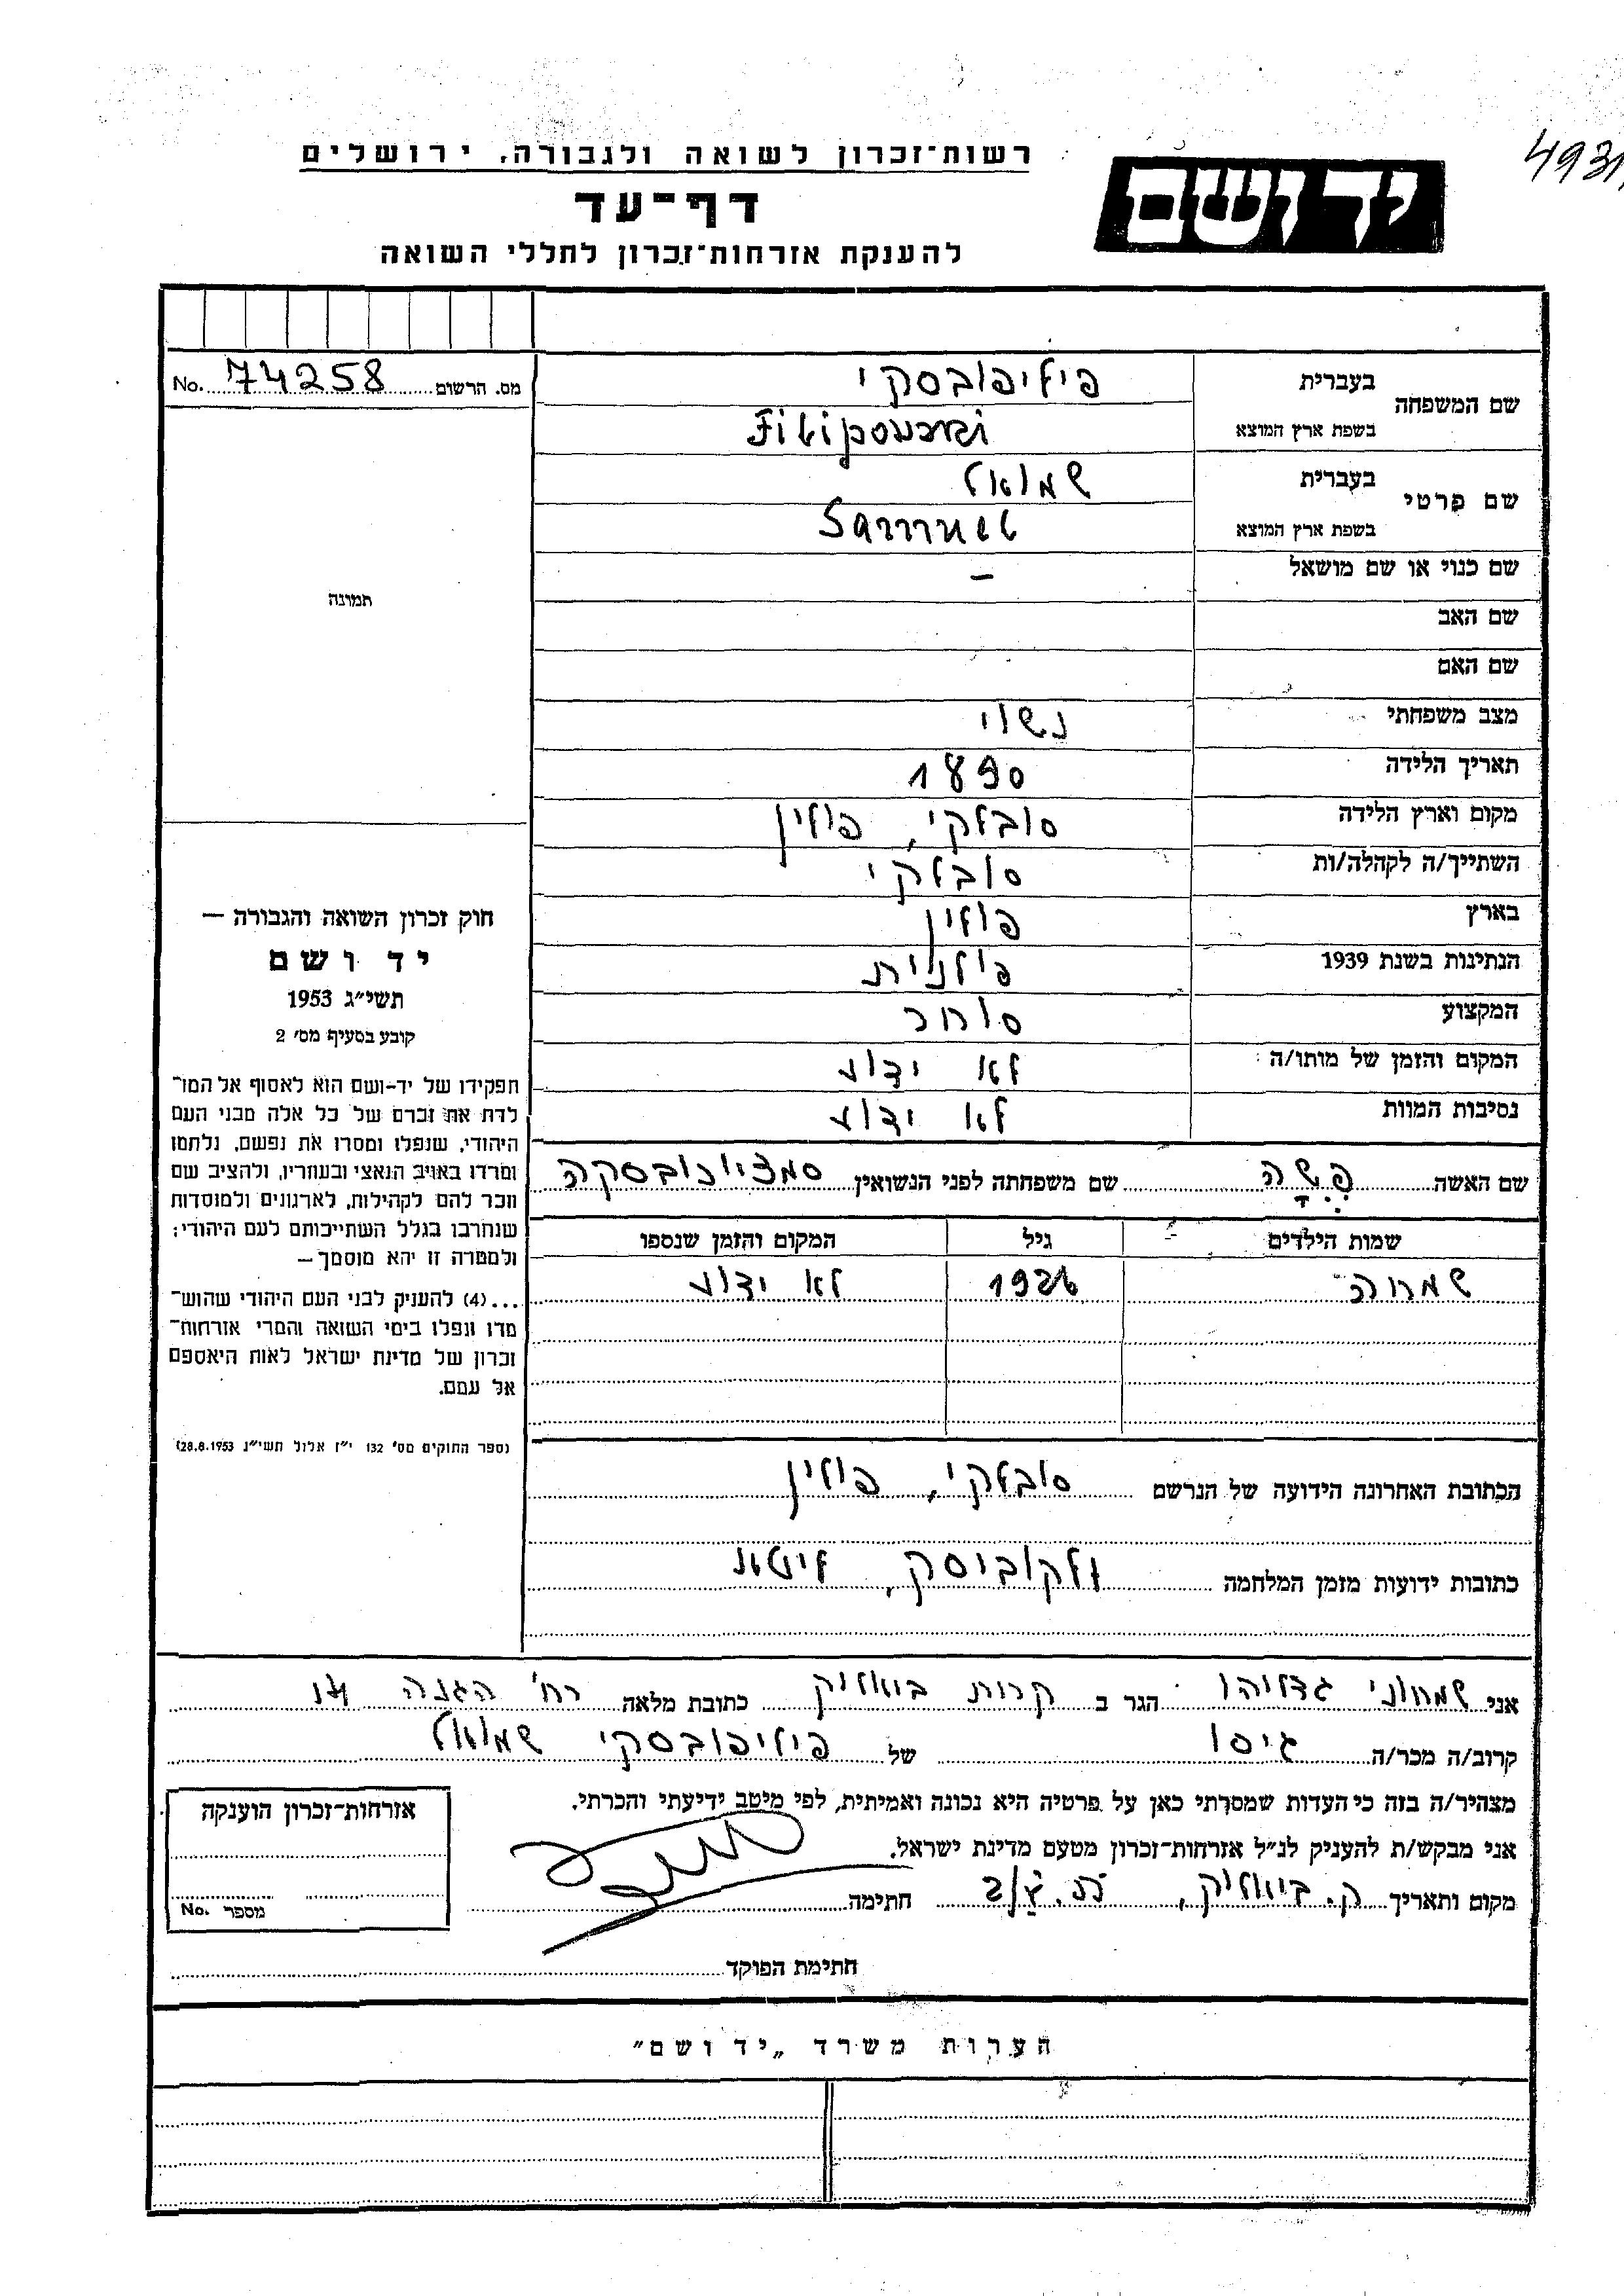 4931
רשות־זכרון לשואה ולגבורה, ירושלים
יד ושם
דף־עד
להענקת אזרחות־זכרון לחללי השואה
מס. הרשום 74258 No.
שם המשפחה
בעברית פיליפובסקי
בשפת ארץ המוצא Filipowski
שם פרטי
בעברית שמואל
בשפת ארץ המוצא Samuel
שם כנוי או שם מושאל –
שם האב
שם האם
מצב משפחתי נשוי
תאריך הלידה 1890
מקום וארץ הלידה סובלקי, פולין
השתייך/ה לקהלה/ות סובלקי
בארץ פולין
הנתינות בשנת 1939 פולנית
המקצוע סוחר
המקום והזמן של מותו/ה: לא ידוע
נסיבות המוות לא ידוע
תמונה
חוק זכרון השואה והגבורה —
יד ושם
תשי״ג 1953
קובע בסעיף מס׳ 2
תפקידו של יד-ושם הוא לאסוף אל המו־
לדת את זכרם של כל אלה מבני העם
היהודי, שנפלו ומסרו את נפשם, נלחמו
ומרדו באויב הנאצי ובעוזריו, ולהציב שם
וזכר להם לקהילות, לארגונים ולמוסדות
שנחרבו בגלל השתייכותם לעם היהודי;
ולמטרה זו יהא מוסמך —
...(4) להעניק לבני העם היהודי שהוש־
מדו ונפלו בימי השואה והמרי אזרחות־
זכרון של מדינת ישראל לאות היאספם
אל עמם.
(ספר החוקים מס׳ 132 י״ז אלול תשי״ג 28.8.1953)
שם האשה פשה שם משפחתה לפני הנשואין
שמות הילדים גיל המקום והזמן שנספו
שמחה לא ידוע
הכתובת האחרונה הידועה של הנרשם סובלקי, פולין
כתובות ידועות מזמן המלחמה ליטא
אני שמחוני גדליהו הגר ב קרית ביאליק כתובת מלאה רח׳ ההגנה
קרוב/ה מכר/ה גיסו של פיליפובסקי שמואל
מצהיר/ה בזה כי העדות שמסרתי כאן על פרטיה היא נכונה ואמיתית, לפי מיטב ידיעתי והכרתי.
אני מבקש/ת להעניק לנ״ל אזרחות־זכרון מטעם מדינת ישראל.
מקום ותאריך ק. ביאליק, חתימה
חתימת הפוקד
אזרחות־זכרון הוענקה
מספר No.
הערות משרד „יד ושם״